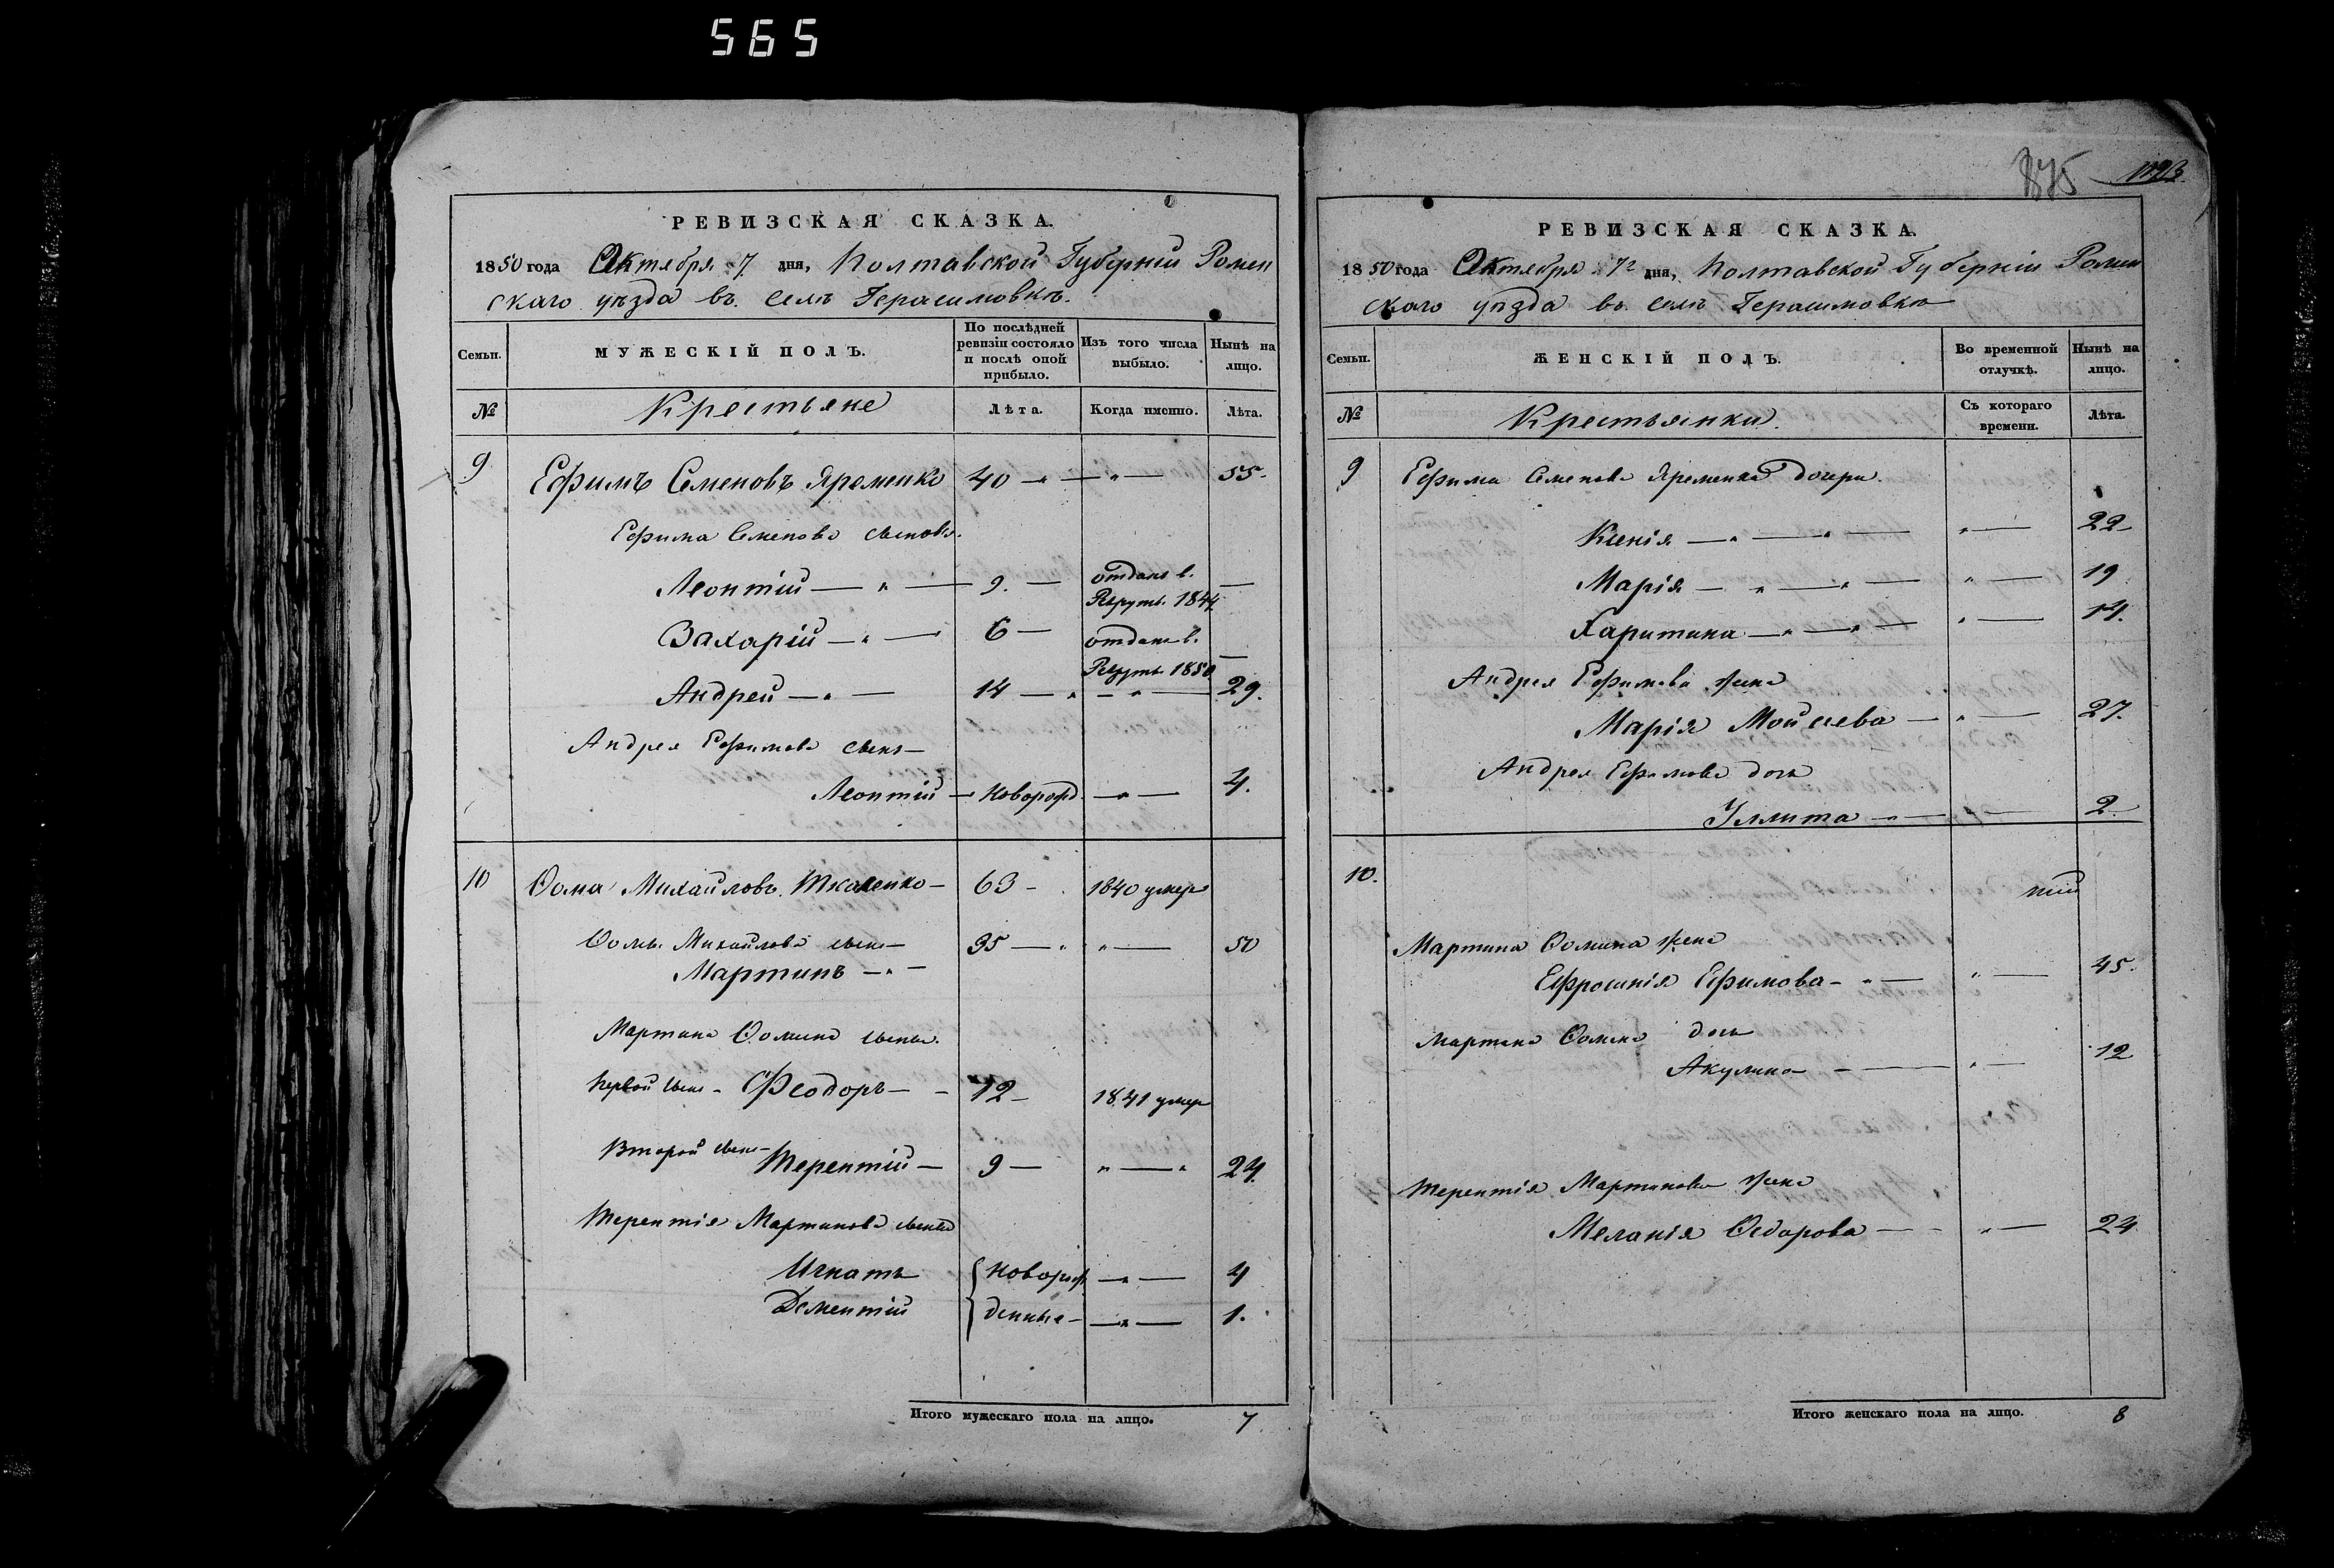 565
РЕВИЗСКАЯ СКАЗКА.
1850 года Октября 7 дня, Полтавской Губерніи Ромен
скаго уѣзда въ селѣ Герасимовкѣ.
Семьи. МУЖЕСКІЙ ПОЛЪ. По послѣдней ревизіи состояло и послѣ оной прибыло. Изъ того числа выбыло. Нынѣ на лицо.
№ Крестьяне Лѣта. Когда именно. Лѣта.
9 Ефимъ Семеновъ Яременко 40 — „ — „ — 55.
Ефима Семенова сыновья.
Леонтій — „ — 9. — отданъ в. Рекруты. 1844 —
Захарій — „ — 6 — отданъ в. Рекруты. 1850 —
Андрей — „ — 14 — „ — „ — 29.
Андрея Ефимова сынъ —
Леонтій — новорожд. — „ — 4.
10 Ѳома Михайловъ Ткаченко — 63 — 1840 умеръ
Ѳомы Михайлова сынъ — 35 — „ „ — 50
Мартинъ — „ —
Мартина Ѳомина сынья.
Первой сынъ — Феодоръ — 12 — 1841 умер
Второй сынъ — Терентій — 9 — „ — „ 24.
Терентія Мартинова сынья
Игнатъ { новорож — „ — 4
Дементій { денные — — „ — 1.
Итого мужескаго пола на лицо. 7.
875
РЕВИЗСКАЯ СКАЗКА.
1850 года Октября 7 дня, Полтавской Губерніи Ромен
скаго уѣзда въ селѣ Герасимовкѣ
Семьи. ЖЕНСКІЙ ПОЛЪ. Во временной отлучкѣ. Нынѣ на лицо.
№ Крестьянки. Съ котораго времени. Лѣта.
9 Ефима Семенова Яременка дочери.
Ксенія — „ — „ — „ — 22
Марія — „ — „ — „ — 19
Харитина — „ — „ — „ — 14.
Андрея Ефимова жена
Марія Мойсеева — „ — 27.
Андрея Ефимова дочь
Улита — „ — — 2
10.
Мартина Ѳомина жена
Ефросинія Ефимова — „ — „ — 45.
Мартина Ѳомина дочь
Акулина — — „ — 12
Терентія Мартинова жена
Меланія Ѳедорова — — „ — 24
Итого женскаго пола на лицо. 8